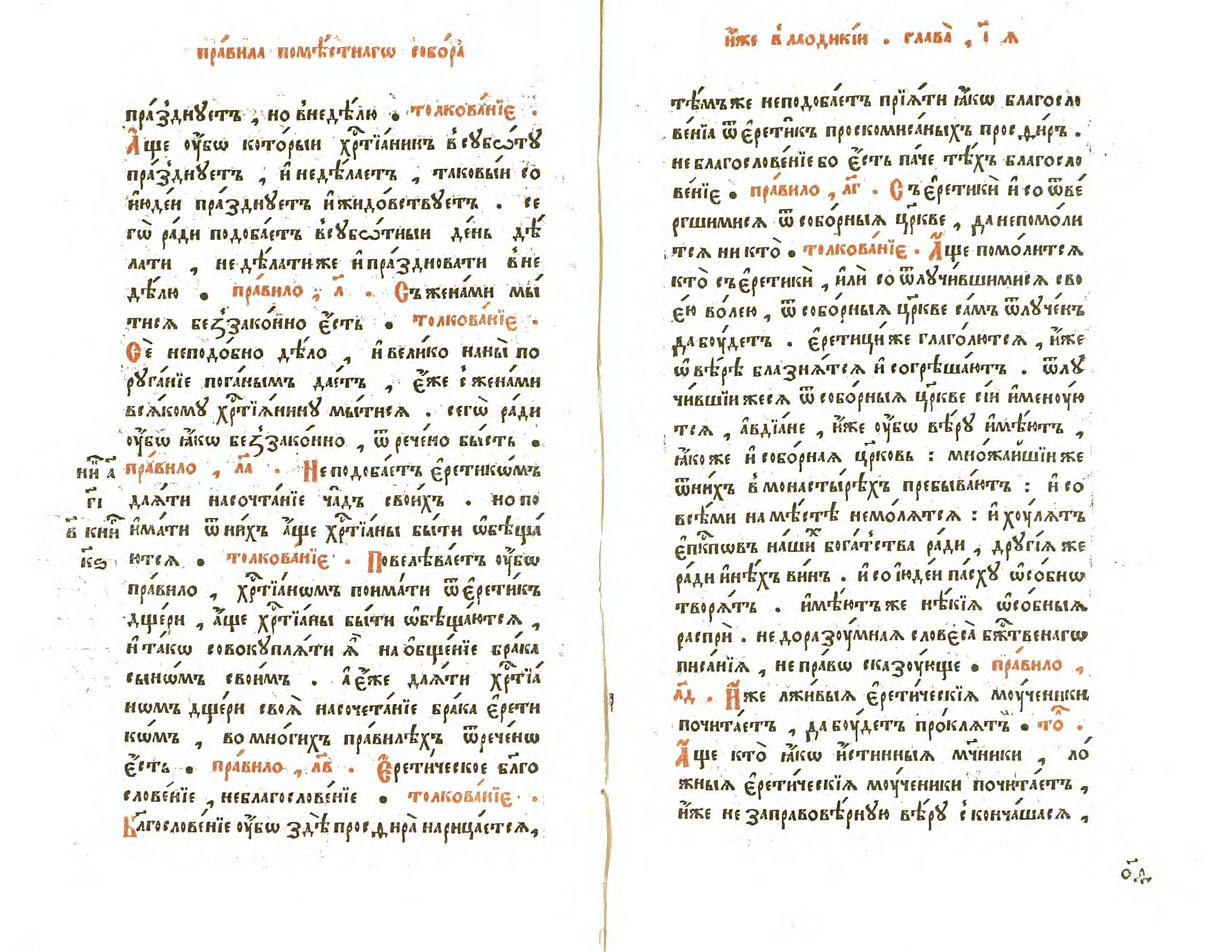 пра́вила помѣ́стнагѡ собо́ра
пра́зднꙋетъ , но внедѣ́лю . толкова́нїе .
А҆́ще ᲂу҆́бѡ кото́рыи хрⷭ҇тїа́нинъ всꙋббѡ́тꙋ
пра́зднꙋетъ , и҆ недѣ́лаетъ , таковы́и со
и҆ю҆де́и пра́зднꙋетъ и҆ жидо́вствꙋетъ . се
гѡ̀ ради подоба́етъ всꙋбѡ́тныи де́нь дѣ́
лати , не дѣ́лати же и҆ пра́здновати вне
дѣ́лю . пра́вило , л҃ . Съ жена́ми мы́
тисѧ беззако́нно є҆́сть . толкова́нїе .
Сѐ неподо́бно дѣ́ло , и҆ вели́ко на ны̀ по
рꙋга́нїе пога́нымъ дае́тъ , є҆́же с жена́ми
всѧ́комꙋ хрⷭ҇тїѧ́нинꙋ мы́тисѧ . сегѡ̀ ради
ᲂу҆́бѡ ꙗ҆́кѡ беззако́нно , ѿ речено̀ бы́сть .
пра́вило , л҃а . Не подоба́етъ є҆ретикѡ́мъ
даѧ́ти на сочта́нїе ча́дъ свои́хъ . но по
и҆ма́ти ѿ ни́хъ а҆́ще хрⷭ҇тїа́ны бы́ти ѡ҆бѣща
ю́тсѧ . толкова́нїе . Повелѣва́етъ ᲂу҆́бѡ
пра́вило , хрⷭ҇тїа́нѡмъ поима́ти ѿ є҆рети́къ
дще́ри , а҆́ще хрⷭ҇тїа́ны бы́ти ѡ҆бѣща́ютсѧ ,
и҆ та́кѡ совокꙋплѧ́ти ѧ҆̀ на ѻ҆бще́нїе бра́ка
сынѡ́мъ свои́мъ . а҆ є҆́же даѧ́ти хрⷭ҇тїа́
нѡмъ дще́ри своѧ̀ на сочета́нїе бра́ка є҆рети
кѡ́мъ , во мно́гихъ пра́вилѣхъ ѿрече́нѡ
є҆́сть . пра́вило , л҃в . Є҆рети́ческое бл҃го
слове́нїе , неблагослове́нїе . толкова́нїе .
Бл҃гослове́нїе ᲂу҆́бѡ здѣ̀ просѳира̀ нарица́етсѧ ,
ни҆к а҃
г҃і
в҃ ки҆п
к҃ѕ
и҆́же в лаодики́и . глава̀ , і҃ ꙗ
тѣ́мъ же неподоба́етъ прїѧ́ти ꙗ҆́кѡ благосло
ве́нїѧ ѿ є҆рети́къ проскомиса́ныхъ просѳи́ръ .
не благослове́нїе бо є҆́сть па́че тѣ́хъ благосло
ве́нїе . пра́вило , л҃г . Съ є҆ретикѝ и҆ со ѿве́
ргшимисѧ ѿ собо́рныѧ цр҃кве , да непомо́ли
тсѧ ни кто̀ . толкова́нїе . А҆́ще помо́литсѧ
кто̀ съ є҆ретикѝ , и҆лѝ со ѿлꙋчи́вшимисѧ сво
е́ю во́лею , ѿ собо́рныѧ цр҃кве са́мъ ѿлꙋче́нъ
да бꙋ́детъ . є҆ретици́ же глаго́лютсѧ , и҆́же
ѡ҆ вѣ́рѣ блазнѧ́тсѧ и҆ согрѣша́ютъ . ѿлꙋ
чи́вшїи жесѧ ѿ собо́рныѧ цр҃кве сі́и и҆менꙋ́ю
тсѧ , а҆вдїа́не , и҆́же ᲂу҆́бѡ вѣ́рꙋ и҆мѣ́ютъ ,
ꙗ҆́ко же и҆ собо́рнаѧ цр҃ковь : мно́жайшїи же
ѿ ни́хъ в монастырѣ́хъ пребыва́ютъ : и҆ со
всѣ́ми на мѣ́стѣ немо́лѧтсѧ : и҆ хꙋ́лѧтъ
є҆пⷭ҇кпѡвъ на́шиⷯ бога́тства ради , дрꙋгі́ѧ же
ради и҆нѣ́хъ ви́нъ . и҆ со і҆ю҆де́и па́схꙋ ѡ҆со́бнѡ
творѧ́тъ . и҆мѣ́ютъ же нѣ́кїѧ ѡ҆со́бныѧ
ра́спри . не доразꙋ́мнаѧ словеса̀ бж҃твенагѡ
писа́нїѧ , не пра́вѡ сказꙋ́юще . пра́вило ,
л҃д . И҆́же лжи́выѧ є҆рети́ческїѧ мꙋ́ченики
почита́етъ , да бꙋ́детъ про́клѧтъ . то́ⷧ .
А҆́ще кто̀ ꙗ҆́кѡ и҆́стинныѧ мч҃ники , ло́
жныѧ є҆рети́ческїѧ мꙋ́ченики почита́етъ ,
и҆́же не за правовѣ́рнꙋю вѣ́рꙋ сконча́шасѧ ,
ѻ҃д